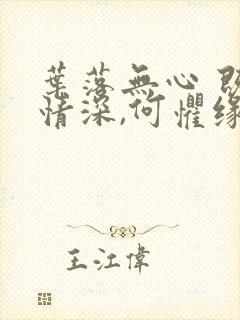 葉落無心
情深,何懼缘
王江偉